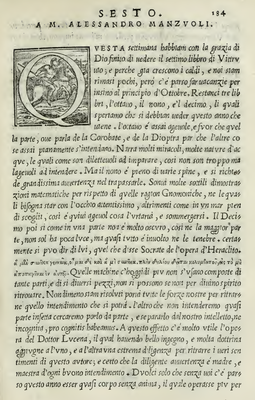 SESTO. 134
A M. ALESSANDRO MANZVOLI.
QVESTA settimana habbiam con la gratia di
Dio finito di uedere il settimo libro di Vitru
uio; e perche gia crescono i caldi, e noi stam
rimasti pochi, però c'è parso far uacanze per
insino al principio d'Ottobre. Restanci tre li
bri, l'ottauo, il nono, e'l decimo, li quali
speriamo che si debban ueder questo anno che
uiene. L'ottauo è assai ageuole, e fuor che quel
la parte, oue parla de la Carobate, e de la Dioptra par che l'altre co
se assai pianamente s'intendano. Narra molti miracoli, molte nature d'ac
que, le quali come son diletteuoli ad imparare, così non son troppo ma
lageuoli ad intendere. Ma il nono è pieno di uarie spine, e si richie
de grandissima auuertenza nel trapassarlo. Sonui molte sottili dimostra
zioni matematiche per rispetto di quelle ragion Gnomoniche, ne le qua
li bisogna star con l'occhio attentissimo, altrimenti come in un mar pien
di scogli, così è quiui ageuol cosa l'urtarui, e sommergersi. Il Deci
mo poi sì come in una parte non è molto oscuro, così ne la maggior par
te, non sol ha poca luce, ma quasi tutto è inuolto ne le tenebre. certa
mente si può dir di lui, quel che disse Socrate de l'opera d'Heraclito.
Quelle machine c'hoggidì piu non s'usano composte di
tante parti, e di sì diuersi pezzi, non si possono se non per diuino spirito
ritrouare. Nondimeno starà risoluto porui tutte le forze nostre per ritrar
ne quello intendimento che si potrà. l'altro che non intenderemo quasi
parte infetta cercaremo porlo da parte, e separarlo dal nostro intelletto, ne
incognita, pro cognitis habeamus. A questo effetto c'è molto utile l'ope
ra del Dottor Lucena, il qual hauendo bello ingegno, e molta dottrina
aggiugne a l'uno, e a l'altra una estrema diligenza per ritrarre i ueri sen
timenti di questo autore; e certo che la diligente auuertenza è madre, e
maestra d'ogni buono intendimento. Duolci solo che senza uoi c'è par
so questo anno esser quasi corpo senza anima, il quale operasse piu per